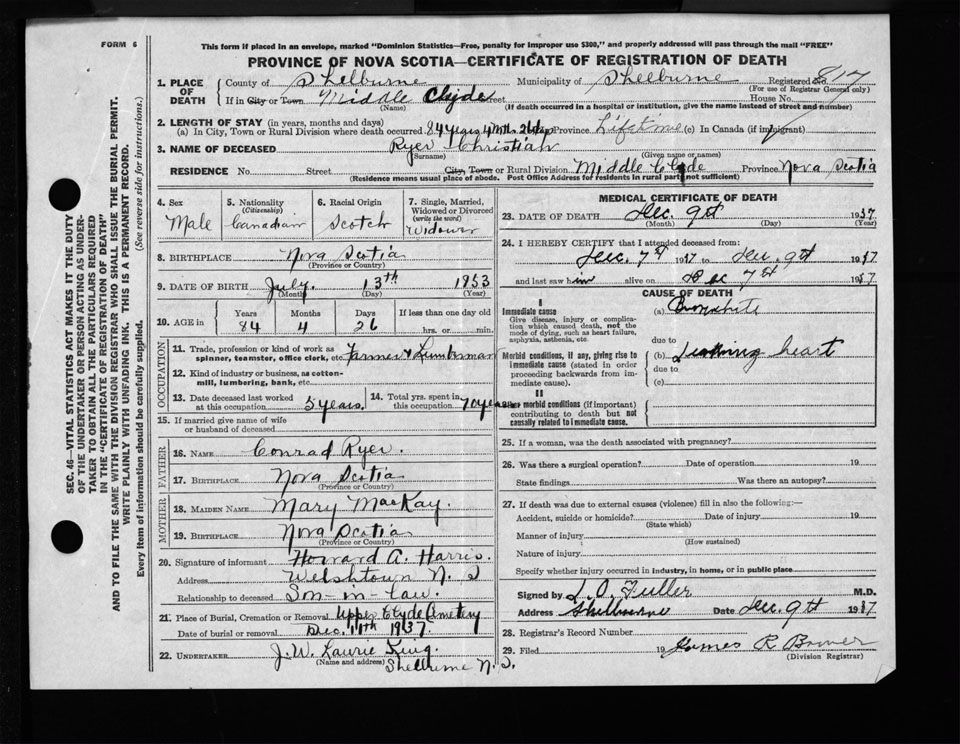 FORM 6
This form if placed in an envelope, marked "Dominion Statistics—Free, penalty for improper use $300," and properly addressed will pass through the mail "FREE"
PROVINCE OF NOVA SCOTIA—CERTIFICATE OF REGISTRATION OF DEATH
1. PLACE OF DEATH
County of Shelburne Municipality of Shelburne Registered No. 817
(For use of Registrar General only)
If in City or Town Middle Clyde Street House No.
(Name) (If death occurred in a hospital or institution, give the name instead of street and number)
2. LENGTH OF STAY (in years, months and days)
(a) In City, Town or Rural Division where death occurred 84 years 4 mths 26 dys Province Lifetime (c) In Canada (if immigrant)
3. NAME OF DECEASED Ryer Christian
(Surname) (Given name or names)
RESIDENCE No. Street City, Town or Rural Division Middle Clyde Province Nova Scotia
(Residence means usual place of abode. Post Office Address for residents in rural parts not sufficient)
4. Sex
Male
5. Nationality
(Citizenship)
Canadian
6. Racial Origin
Scotch
7. Single, Married, Widowed or Divorced
(write the word)
Widower
8. BIRTHPLACE Nova Scotia
(Province or Country)
9. DATE OF BIRTH July 13th 1853
(Month) (Day) (Year)
10. AGE in Years Months Days If less than one day old
84 4 26 hrs. or min.
OCCUPATION
11. Trade, profession or kind of work as spinner, teamster, office clerk, etc. Farmer & Lumberman
12. Kind of industry or business, as cotton-mill, lumbering, bank, etc.
13. Date deceased last worked at this occupation 5 years.
14. Total yrs. spent in this occupation 70 years
15. If married give name of wife or husband of deceased
FATHER
16. NAME Conrad Ryer.
17. BIRTHPLACE Nova Scotia
(Province or Country)
MOTHER
18. MAIDEN NAME Mary MacKay.
19. BIRTHPLACE Nova Scotia
(Province or Country)
20. Signature of informant Howard A. Harris.
Address Welshtown N. S
Relationship to deceased Son-in-law.
21. Place of Burial, Cremation or Removal Upper Clyde Cemetery
Date of burial or removal Dec. 11th 1937
22. UNDERTAKER J. W. Laurie King.
(Name and address) Shelburne N. S.
MEDICAL CERTIFICATE OF DEATH
23. DATE OF DEATH Dec. 9th 1937
(Month) (Day) (Year)
24. I HEREBY CERTIFY that I attended deceased from:
Dec. 7th 1937 to Dec. 9th 1937
and last saw him alive on Dec 7th 1937
CAUSE OF DEATH
I
Immediate cause
Give disease, injury or complication which caused death, not the mode of dying, such as heart failure, asphyxia, asthenia, etc.
(a)
due to
Morbid conditions, if any, giving rise to immediate cause (stated in order proceeding backwards from immediate cause).
(b) heart
due to
(c)
II
Other morbid conditions (if important) contributing to death but not causally related to immediate cause.
25. If a woman, was the death associated with pregnancy?
26. Was there a surgical operation? Date of operation 19
State findings Was there an autopsy?
27. If death was due to external causes (violence) fill in also the following:—
Accident, suicide or homicide? Date of injury 19
(State which)
Manner of injury
(How sustained)
Nature of injury
Specify whether injury occurred in industry, in home, or in public place
Signed by L. O. Fuller M.D.
Address Shelburne Date Dec. 9th 1937
28. Registrar's Record Number
29. Filed 19 James R Bower
(Division Registrar)
SEC. 46—VITAL STATISTICS ACT MAKES IT THE DUTY
OF THE UNDERTAKER OR PERSON ACTING AS UNDER-
TAKER TO OBTAIN ALL THE PARTICULARS REQUIRED
IN THE "CERTIFICATE OF REGISTRATION OF DEATH"
AND TO FILE THE SAME WITH THE DIVISION REGISTRAR WHO SHALL ISSUE THE BURIAL PERMIT.
WRITE PLAINLY WITH UNFADING INK. THIS IS A PERMANENT RECORD.
Every item of information should be carefully supplied. (See reverse side for instructions.)